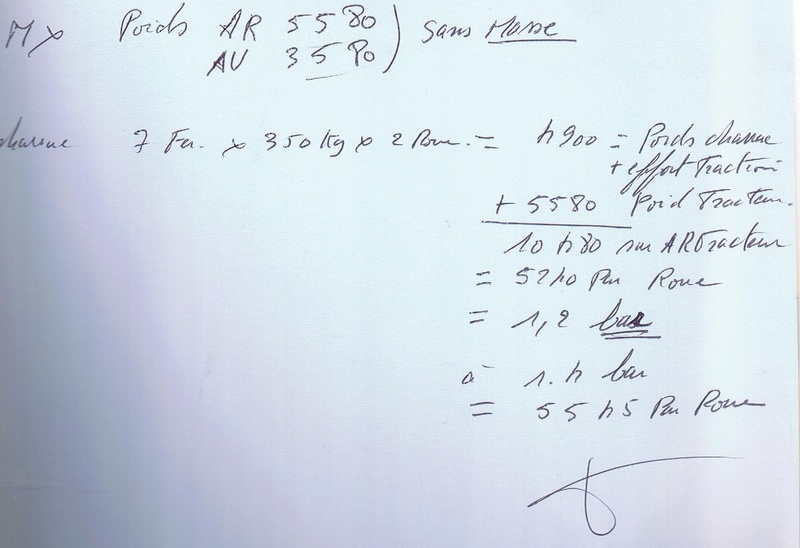 Mx Poids AR 5580 ) Sans Masse
AV 3580
charrue 7 Fer. x 350 Kg x 2 Roue. = 4900 = Poids charrue
+ effort Traction
+ 5580 Poid Tracteur.
10480 sur AR Tracteur
= 5240 Par Roue
= 1,2 bar
à 1.4 bar
= 5545 Par Roue